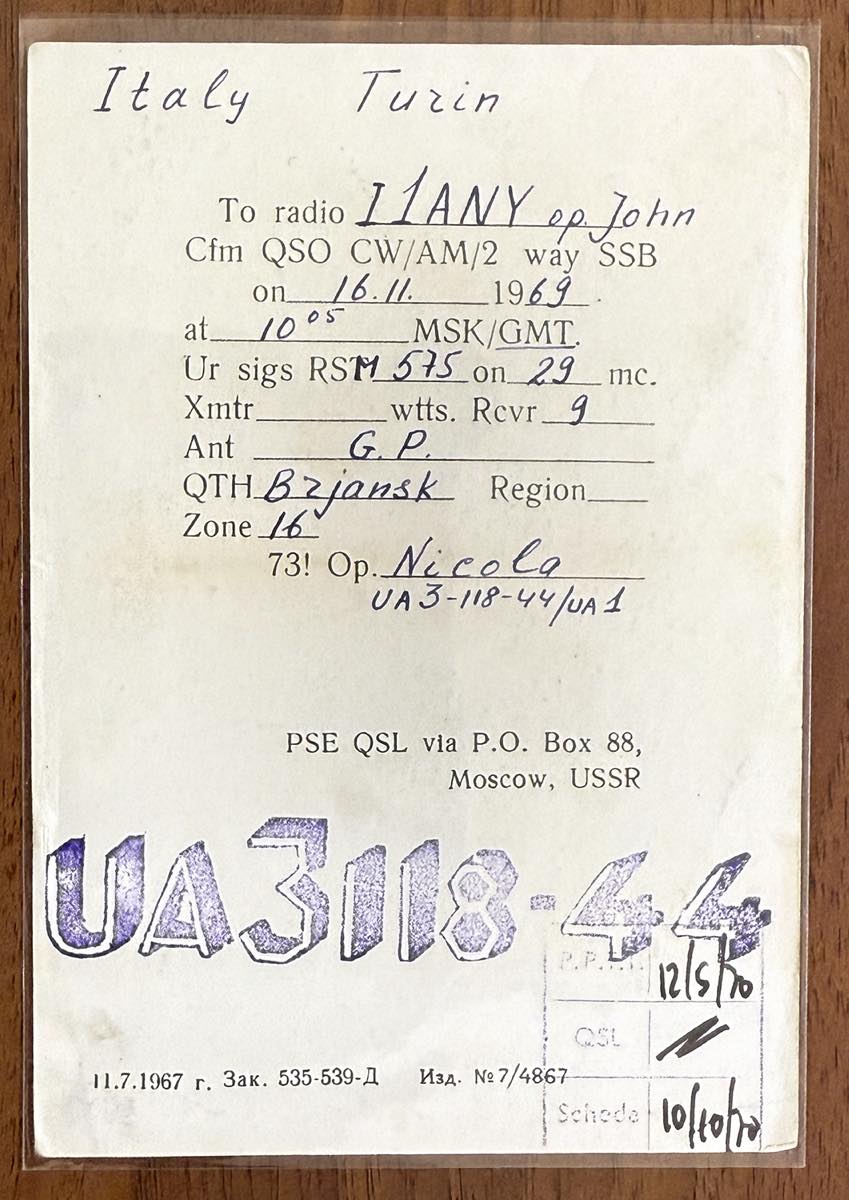 Italy Turin
To radio I1ANY op. John
Cfm QSO CW/AM/2 way SSB
on 16.11. 1969.
at 10 05 MSK/GMT.
Ur sigs RSM 575 on 29 mc.
Xmtr wtts. Rcvr 9
Ant G.P.
QTH Brjansk Region
Zone 16
73! Op. Nicola
UA3-118-44/UA1
PSE QSL via P.O. Box 88,
Moscow, USSR
UA3118-44
12/5/70
QSL
11.7.1967 г. Зак. 535-539-Д Изд. №7/4867
Schede 10/10/70